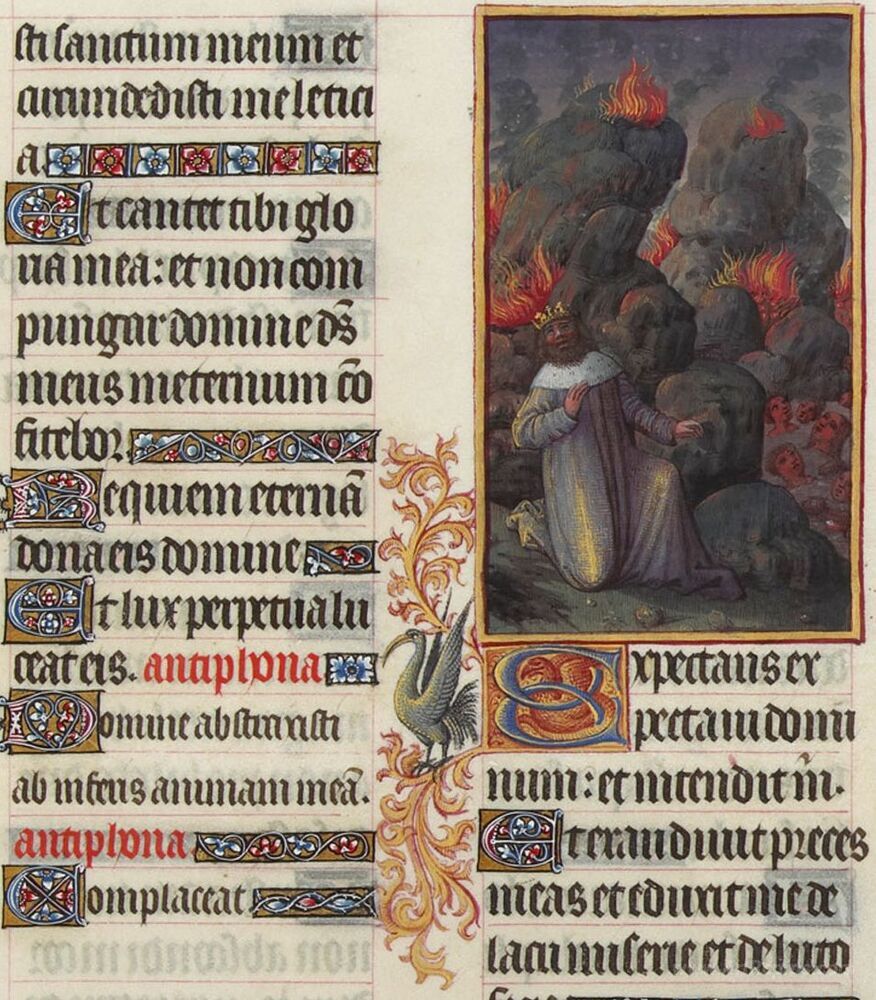 sti sanctum meum et
circumdedisti me letici
a.
Et cantet tibi glo
ria mea: et non com
pungar domine ds̄
meus in eternum cō
fitebor.
Requiem eternā
dona eis domine
Et lux perpetua lu
ceat eis. antiphona
Domine abstraxisti
ab inferis animam meā.
antiphona
Complaceat
Expectans ex
pectavi domi
num: et intendit m̄.
Et exaudivit preces
meas et eduxit me de
lacu miserie et de luto